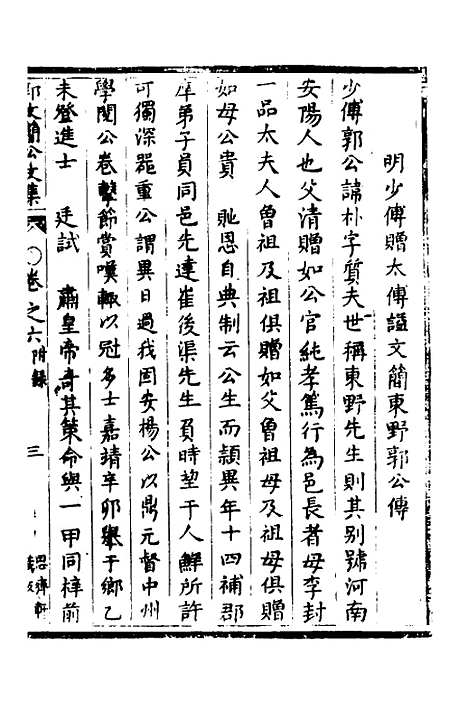 明少傅贈太傅謚文簡東野郭公傳
少傅郭公諱朴字質夫世稱東野先生則其别號河南
安陽人也父清贈如公官純孝篤行為邑長者母李封
一品太夫人曾祖及祖俱贈如父曾祖母及祖母俱贈
如母公貴 馳恩自典制云公生而頴異年十四補郡
庠弟子員同邑先達崔後渠先生負時望于人鮮所許
可獨深噐重公謂異日過我固安楊公以鼎元督中州
學閱公卷擊節賞嘆輒以冠多士嘉靖辛卯舉于鄉乙
未登進士 廷試 肅皇帝奇其策命與一甲同梓前
郭文簡公文集 卷之六 附錄 三 思齊軒